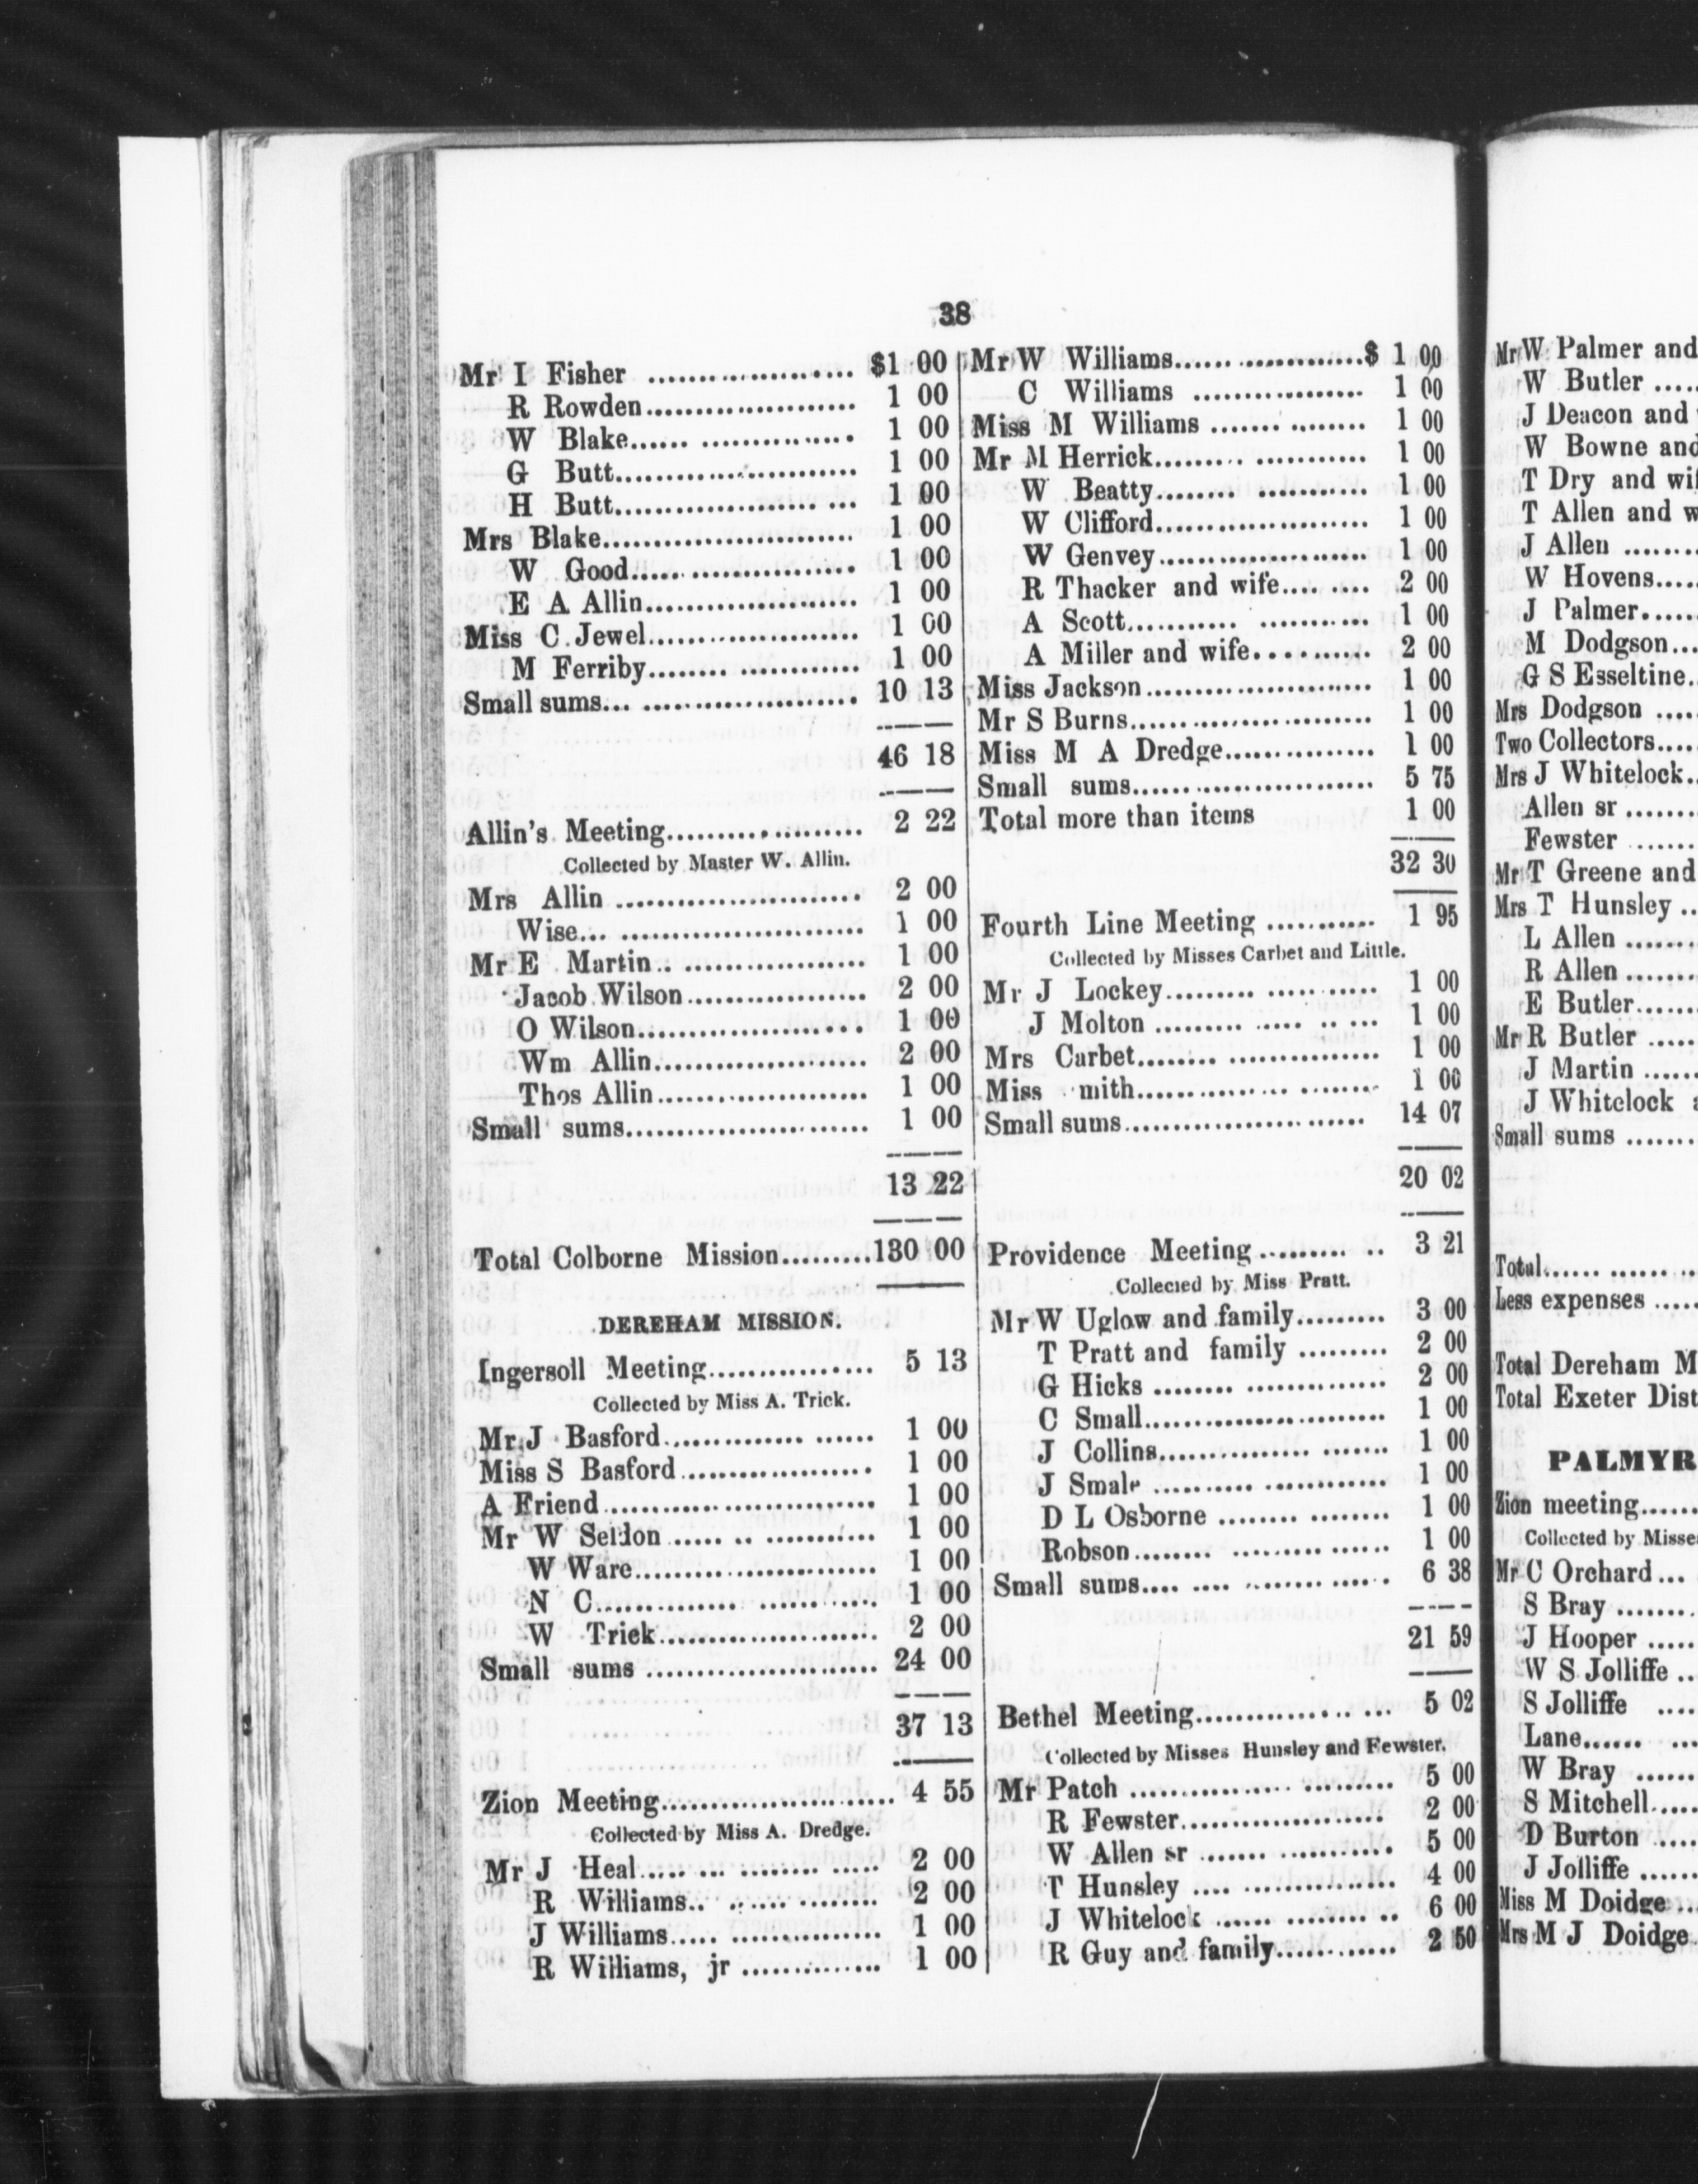 38
Mr I Fisher .................... $1 00
R Rowden..................... 1 00
W Blake...... ............... 1 00
G Butt........................ 1 00
H Butt.................... ... 1 00
Mrs Blake......................... 1 00
W Good...... ................ 1 00
E A Allin..................... 1 00
Miss C Jewel..................... 1 00
M Ferriby........ ............ 1 00
Small sums... ..................... 10 13
46 18
Allin's Meeting.................... 2 22
Collected by Master W. Allin.
Mrs Allin ......................... 2 00
Wise... ........................ 1 00
Mr E Martin.. ................... 1 00
Jacob Wilson.................. 2 00
O Wilson....................... 1 00
Wm Allin...................... 2 00
Thos Allin...................... 1 00
Small sums......................... 1 00
13 22
Total Colborne Mission.........130 00
DEREHAM MISSION.
Ingersoll Meeting................ 5 13
Collected by Miss A. Trick.
Mr J Basford.............. ...... 1 00
Miss S Basford................... 1 00
A Friend........................... 1 00
Mr W Seldon ...... .. ........... 1 00
W Ware........................ 1 00
N C.............. ............ 1 00
W Trick...................... 2 00
Small sums ....................... 24 00
37 13
Zion Meeting........................ 4 55
Collected by Miss A. Dredge.
Mr J Heal..... ... ........ ..... 2 00
R Williams.. ...... ........ 2 00
J Williams..... ............... 1 00
R Williams, jr .............. 1 00
Mr W Williams...... ..............$ 1 00
C Williams ................. 1 00
Miss M Williams ....... ........ 1 00
Mr M Herrick......... ........... 1 00
W Beatty........ ........... 1 00
W Clifford..................... 1 00
W Genvey..................... 1 00
R Thacker and wife.... ..... 2 00
A Scott........... ........... 1 00
A Miller and wife........... 2 00
Miss Jackson....................... 1 00
Mr S Burns........................ 1 00
Miss M A Dredge............... 1 00
Small sums........................ 5 75
Total more than items 1 00
32 30
Fourth Line Meeting ........... 1 95
Collected by Misses Carbet and Little.
Mr J Lockey......... ........... 1 00
J Molton ......... ..... .. ... 1 00
Mrs Carbet........ ............... 1 00
Miss mith............... ........ 1 00
Small sums..................... ...... 14 07
20 02
Providence Meeting......... .. 3 21
Collected by Miss Pratt.
Mr W Uglow and family......... 3 00
T Pratt and family ......... 2 00
G Hicks ........ .............. 2 00
C Small........................ 1 00
J Collins............... ....... 1 00
J Smale .......... ............ 1 00
D L Osborne ........ ........ 1 00
Robson........ ......... ...... 1 00
Small sums.... .... ........ ...... 6 38
21 59
Bethel Meeting............... ... 5 02
Collected by Misses Hunsley and Fewster.
Mr Patch ................ ......... 5 00
R Fewster.................... 2 00
W Allen sr ....... ........... 5 00
T Hunsley .... .............. 4 00
J Whitelock ...... ........ .. 6 00
R Guy and family............ 2 50
Mr W Palmer and
W Butler .....
J Deacon and
W Bowne and
T Dry and
T Allen and
J Allen ........
W Hovens.....
J Palmer......
M Dodgson...
G S Esseltine..
Mrs Dodgson ....
Two Collectors....
Mrs J Whitelock..
Allen sr .......
Fewster ......
Mr T Greene and
Mrs T Hunsley ..
L Allen .......
R Allen .......
E Butler......
Mr R Butler .....
J Martin .....
J Whitelock
Small sums ......
Total...... ........
Less expenses .....
Total Dereham
Total Exeter
Zion meeting......
Collected by
Mr C Orchard ...
S Bray ........
J Hooper .....
W S Jolliffe ..
S Jolliffe ....
Lane...... ...
W Bray ......
S Mitchell.....
D Burton ....
J Jolliffe ......
Miss M Doidge ...
Mrs M J Doidge